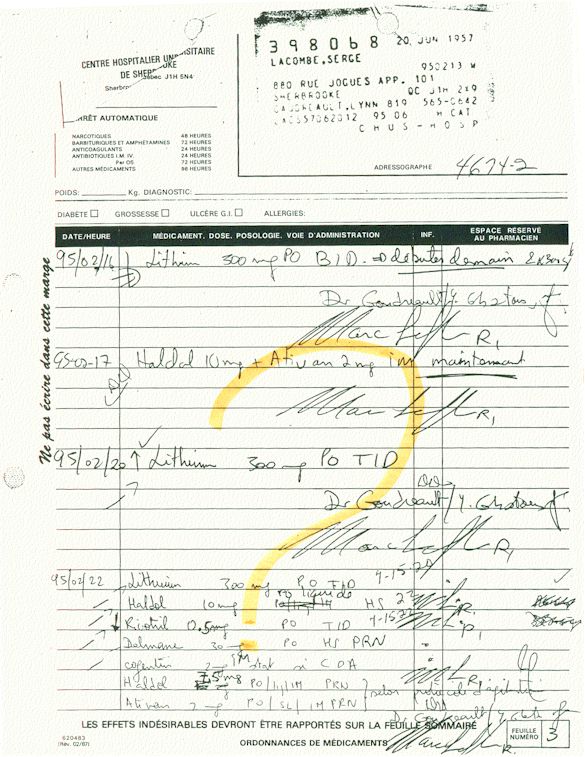 CENTRE HOSPITALIER UNIVERSITAIRE
DE SHERBROOKE
Sherbro Québec J1H 5N4
398068 20 JUN 1957
LACOMBE, SERGE
950213
880 RUE JOGUES APP. 101
SHERBROOKE QC J1H 2X9
LYNN 819 565-0642
95 06 H CAT
CHUS-HOSP
ADRESSOGRAPHE 4674-2
ARRÊT AUTOMATIQUE
NARCOTIQUES 48 HEURES
BARBITURIQUES ET AMPHÉTAMINES 72 HEURES
ANTICOAGULANTS 24 HEURES
ANTIBIOTIQUES I.M. IV. 24 HEURES
Per OS 72 HEURES
AUTRES MÉDICAMENTS 96 HEURES
POIDS: Kg. DIAGNOSTIC:
DIABÈTE GROSSESSE ULCÈRE G.I. ALLERGIES:
DATE/HEURE MÉDICAMENT. DOSE. POSOLOGIE. VOIE D'ADMINISTRATION INF. ESPACE RÉSERVÉ AU PHARMACIEN
Ne pas écrire dans cette marge
95/02/16 Lithium 300 mg PO BID. débuter demain
Dr Goudreault/
95-02-17 Haldol 10 mg + Ativan 2 mg im maintenant
95/02/20 ↑ Lithium 300 mg PO TID
Dr Goudreault/
95/02/22 Lithium 300 mg PO TID
Haldol 10 mg PO liquide HS
↓ Rivotril 0.5 mg PO TID
Dalmane 30 mg PO HS PRN
cogentin 2 mg IM stat si
Haldol mg PO/ /IM PRN selon protocole d'agitation
Ativan 2 mg PO/SL/IM PRN
Dr Goudreault/
LES EFFETS INDÉSIRABLES DEVRONT ÊTRE RAPPORTÉS SUR LA FEUILLE SOMMAIRE
620483
(Rév. 02/87)
ORDONNANCES DE MÉDICAMENTS
FEUILLE NUMÉRO 3